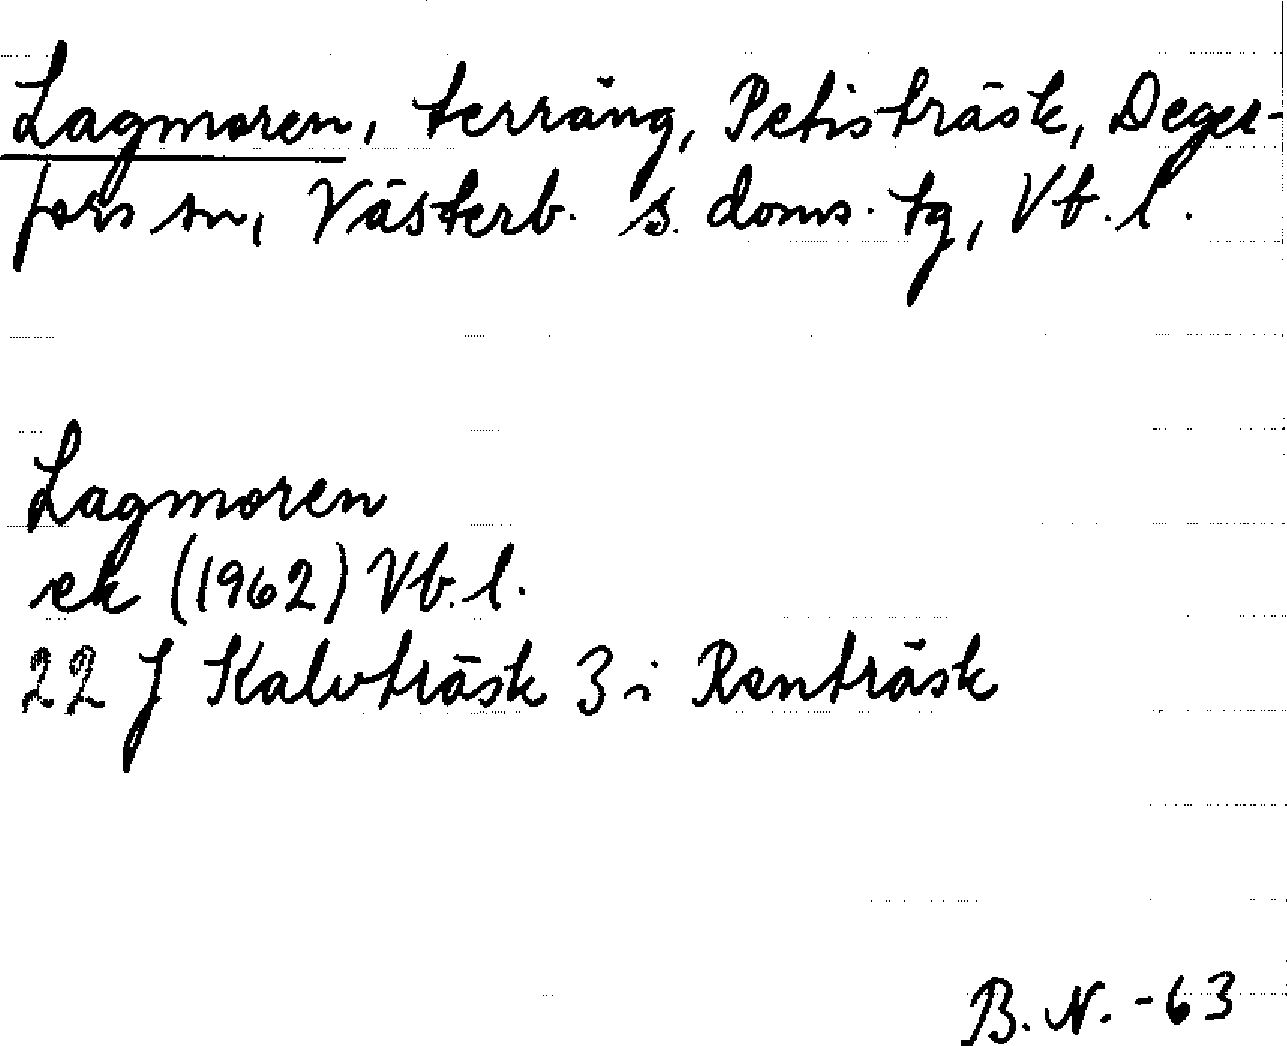 Lagmoren, terräng, Petisträsk, Deger-
fors sn, Västerb. s. doms. tg, Vb. l.
Lagmoren
ek (1962) Vb. l.
22 J Kalvträsk 3 i Renträsk
B. N. -63